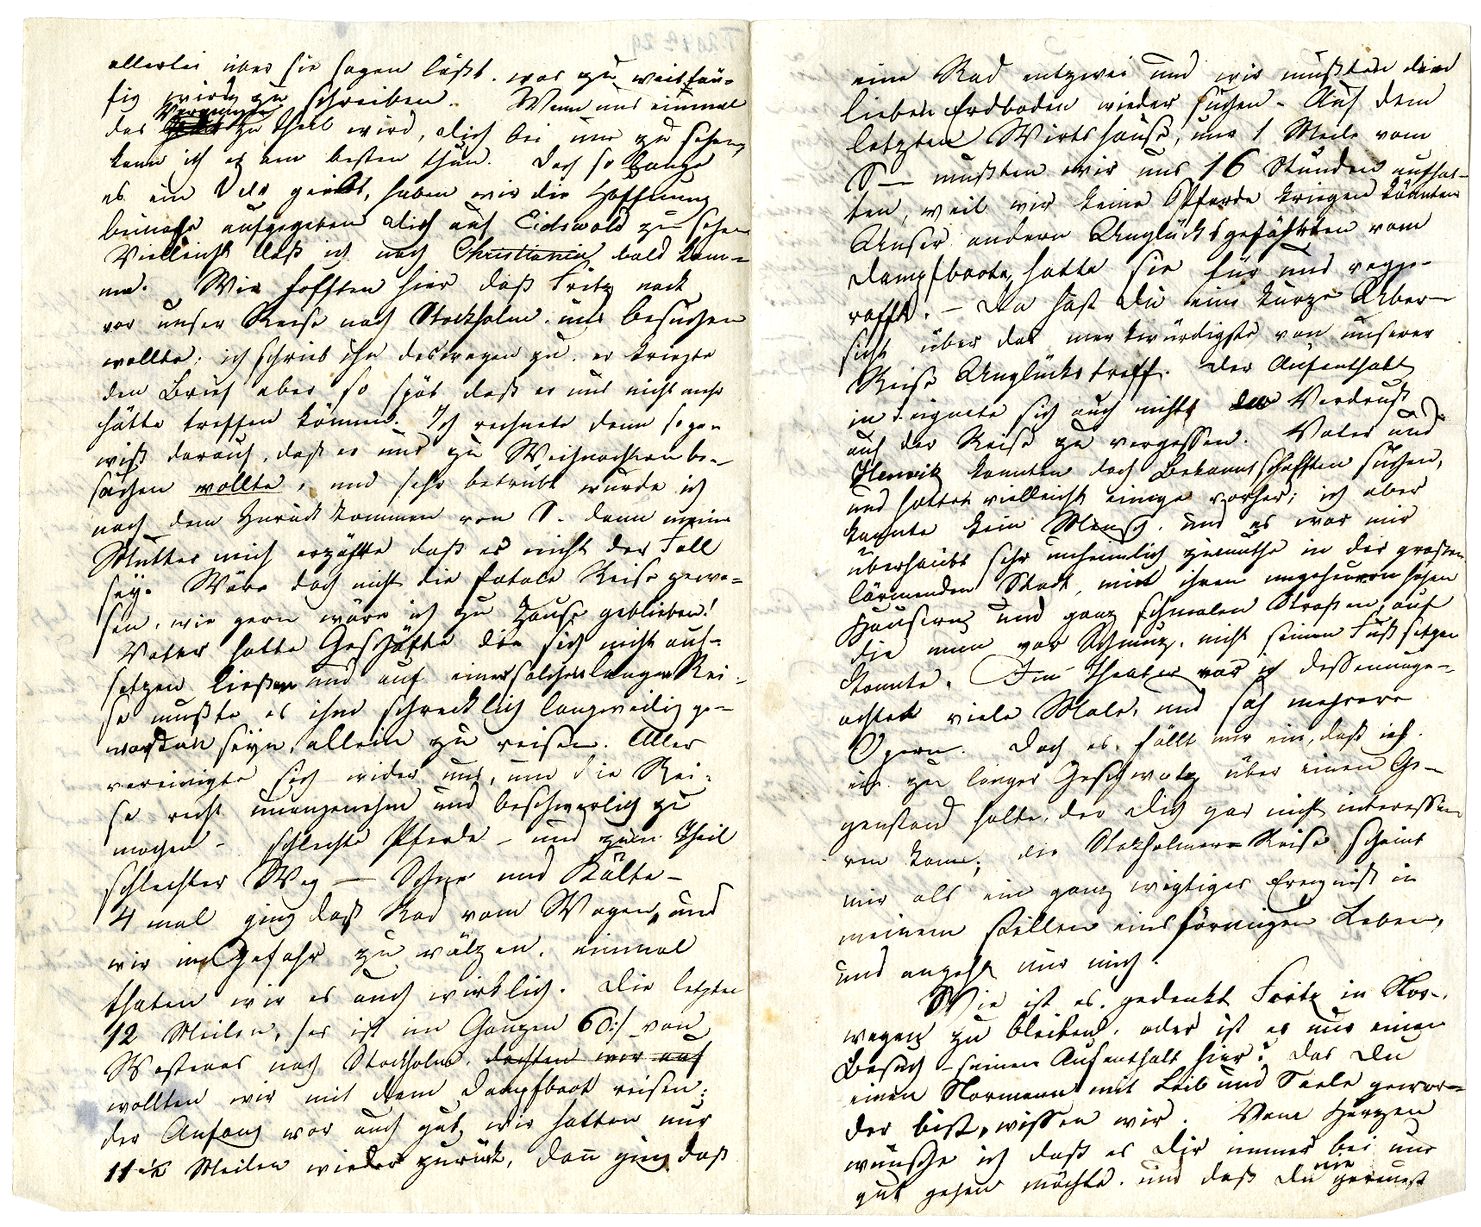 allerlei über sie sagen läßt. was zu weitläu-
fig wird zu schreiben. Wenn uns einmal
das Vergnügen zu Theil wird, dich bei uns zu sehen,
kann ich es am besten thun. Doch so lange
es ein giebt, haben wir die Hoffnung
beinahe aufgegeben dich auf Eidswold zu sehen
Vielleicht daß ich nach Christiania bald kom-
me. Wir hofften hier daß Fritz noch
vor unser Reise nach Stockholm uns besuchen
wollte; ich schrieb ihn deswegen zu. er kriegte
den Brief aber so spät daß er uns nicht mehr
hätte treffen können. Ich rechnete denn so ge-
wiß darauf, daß er uns zu Weihnachten be-
suchen wollte, und sehr betrübt wurde ich
nach dem Zurückkommen von S. denn meine
Mutter mich erzählte daß es nicht der Fall
sey. Wäre doch nicht die fatale Reise gewe-
sen, wie gern wäre ich zu Hause geblieben!
Vater hatte Geschäfte die sich nicht auf-
setzen ließen und auf einer solchen langen Rei-
se mußte es ihm schrecklich langweilig ge-
worden seyn, allein zu reisen. Alles
vereinigte sich wider uns, um die Rei-
se recht unangenehm und beschwerlich zu
machen - schlechte Pferde - und zum Theil
schlechter Weg — Schnee und Kälte -
4 mal ging daß Rad vom Wagen, und
wir in Gefahr zu wälzen. einmal
thaten wir es auch wirklich. Die letzten
12 Meilen, (es ist im Ganzen 60:/ von
Westeraas nach Stockholm, dachten wir auf
wollten wir mit dem Dampfboot reisen;
der Anfang war auch gut, wir hatten nur
11 1/2 Meilen wieder zurück, dann ging daß
eine Rad entzwei und wir mußten den
lieben Erdboden wieder suchen. Auf dem
letzten Wirtshause, nur 1 Meile vom
S— mußten wir uns 16 Stunden aufhal-
ten, weil wir keine Pferde kriegen könnten
Unser andern Unglücksgefährten vom
Dampfboote, hatte sie für uns wegge-
rafft. — Da hast du eine kurze Über-
sicht über das merkwürdigste von unserer
Reise Unglückstreff. Der Aufenthalt
in S eignete sich auch nicht den Verdruß
auf der Reise zu vergessen. Vater und
Henrik konnten doch Bekanntschafften suchen,
und hatten vielleicht einige vorher; ich aber
kannte kein Mensch. und es war mir
überhaubt sehr unheimlich zumuthe in der großen
lärmenden Stadt, mit ihren ungeheuren hohen
Häusern und ganz schmalen Straßen, auf
die man vor Schmuz, nicht seinen Fuß setzen
konnte. Im Theater war ich dessenunge-
achtet viele Male, und sah mehrere
Opern. Doch es fällt mir ein, daß ich
ein zu langes Geschwatz über einen Ge-
genstand halte, der dich gar nicht interessie-
ren kann; die Stokholmer-Reise scheint
mir als ein ganz wigtiges Ereigniß in
meinem stillen einförmigen Leben,
und angeht nur mich.
Wie ist es. gedenkt Fritz in Nor-
wegen zu bleiben, oder ist es nur einen
Besuch - seinen Aufenthalt hier? Das Du
einen Normann mit Leib und Seele gewor-
der bist, wissen wir. Vom Herzen
wünsche ich daß es dir immer bei uns
gut gehen möchte. und daß du nie gereuest